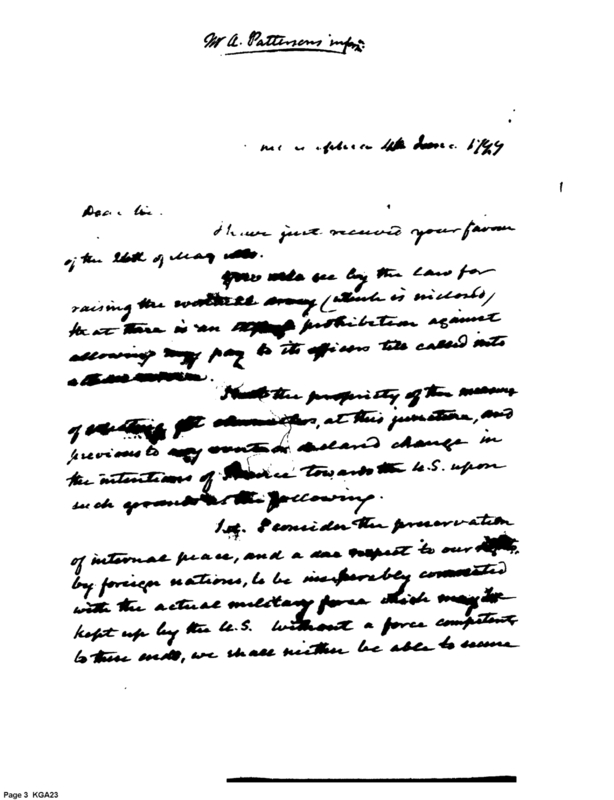 W A. Pattersons infor:
4th June 1799
Dear Sir.
I have just received your favour
of the 26th of May
You will see by the Law for
raising the army (which is inclosed)
that there is an prohibition against
allowing any pay to its officers till called into
the propriety of the measure
of selecting, at this juncture, and
previous to any declared change in
the intentions of France towards the U.S. upon
such grounds as the following.
1st. I consider the preservation
of internal peace, and a due respect to our rights,
by foreign nations, to be inseparably connected
with the actual military force which may be
kept up by the U.S. Without a force competent
to these ends, we shall neither be able to secure
Page 3 KGA23